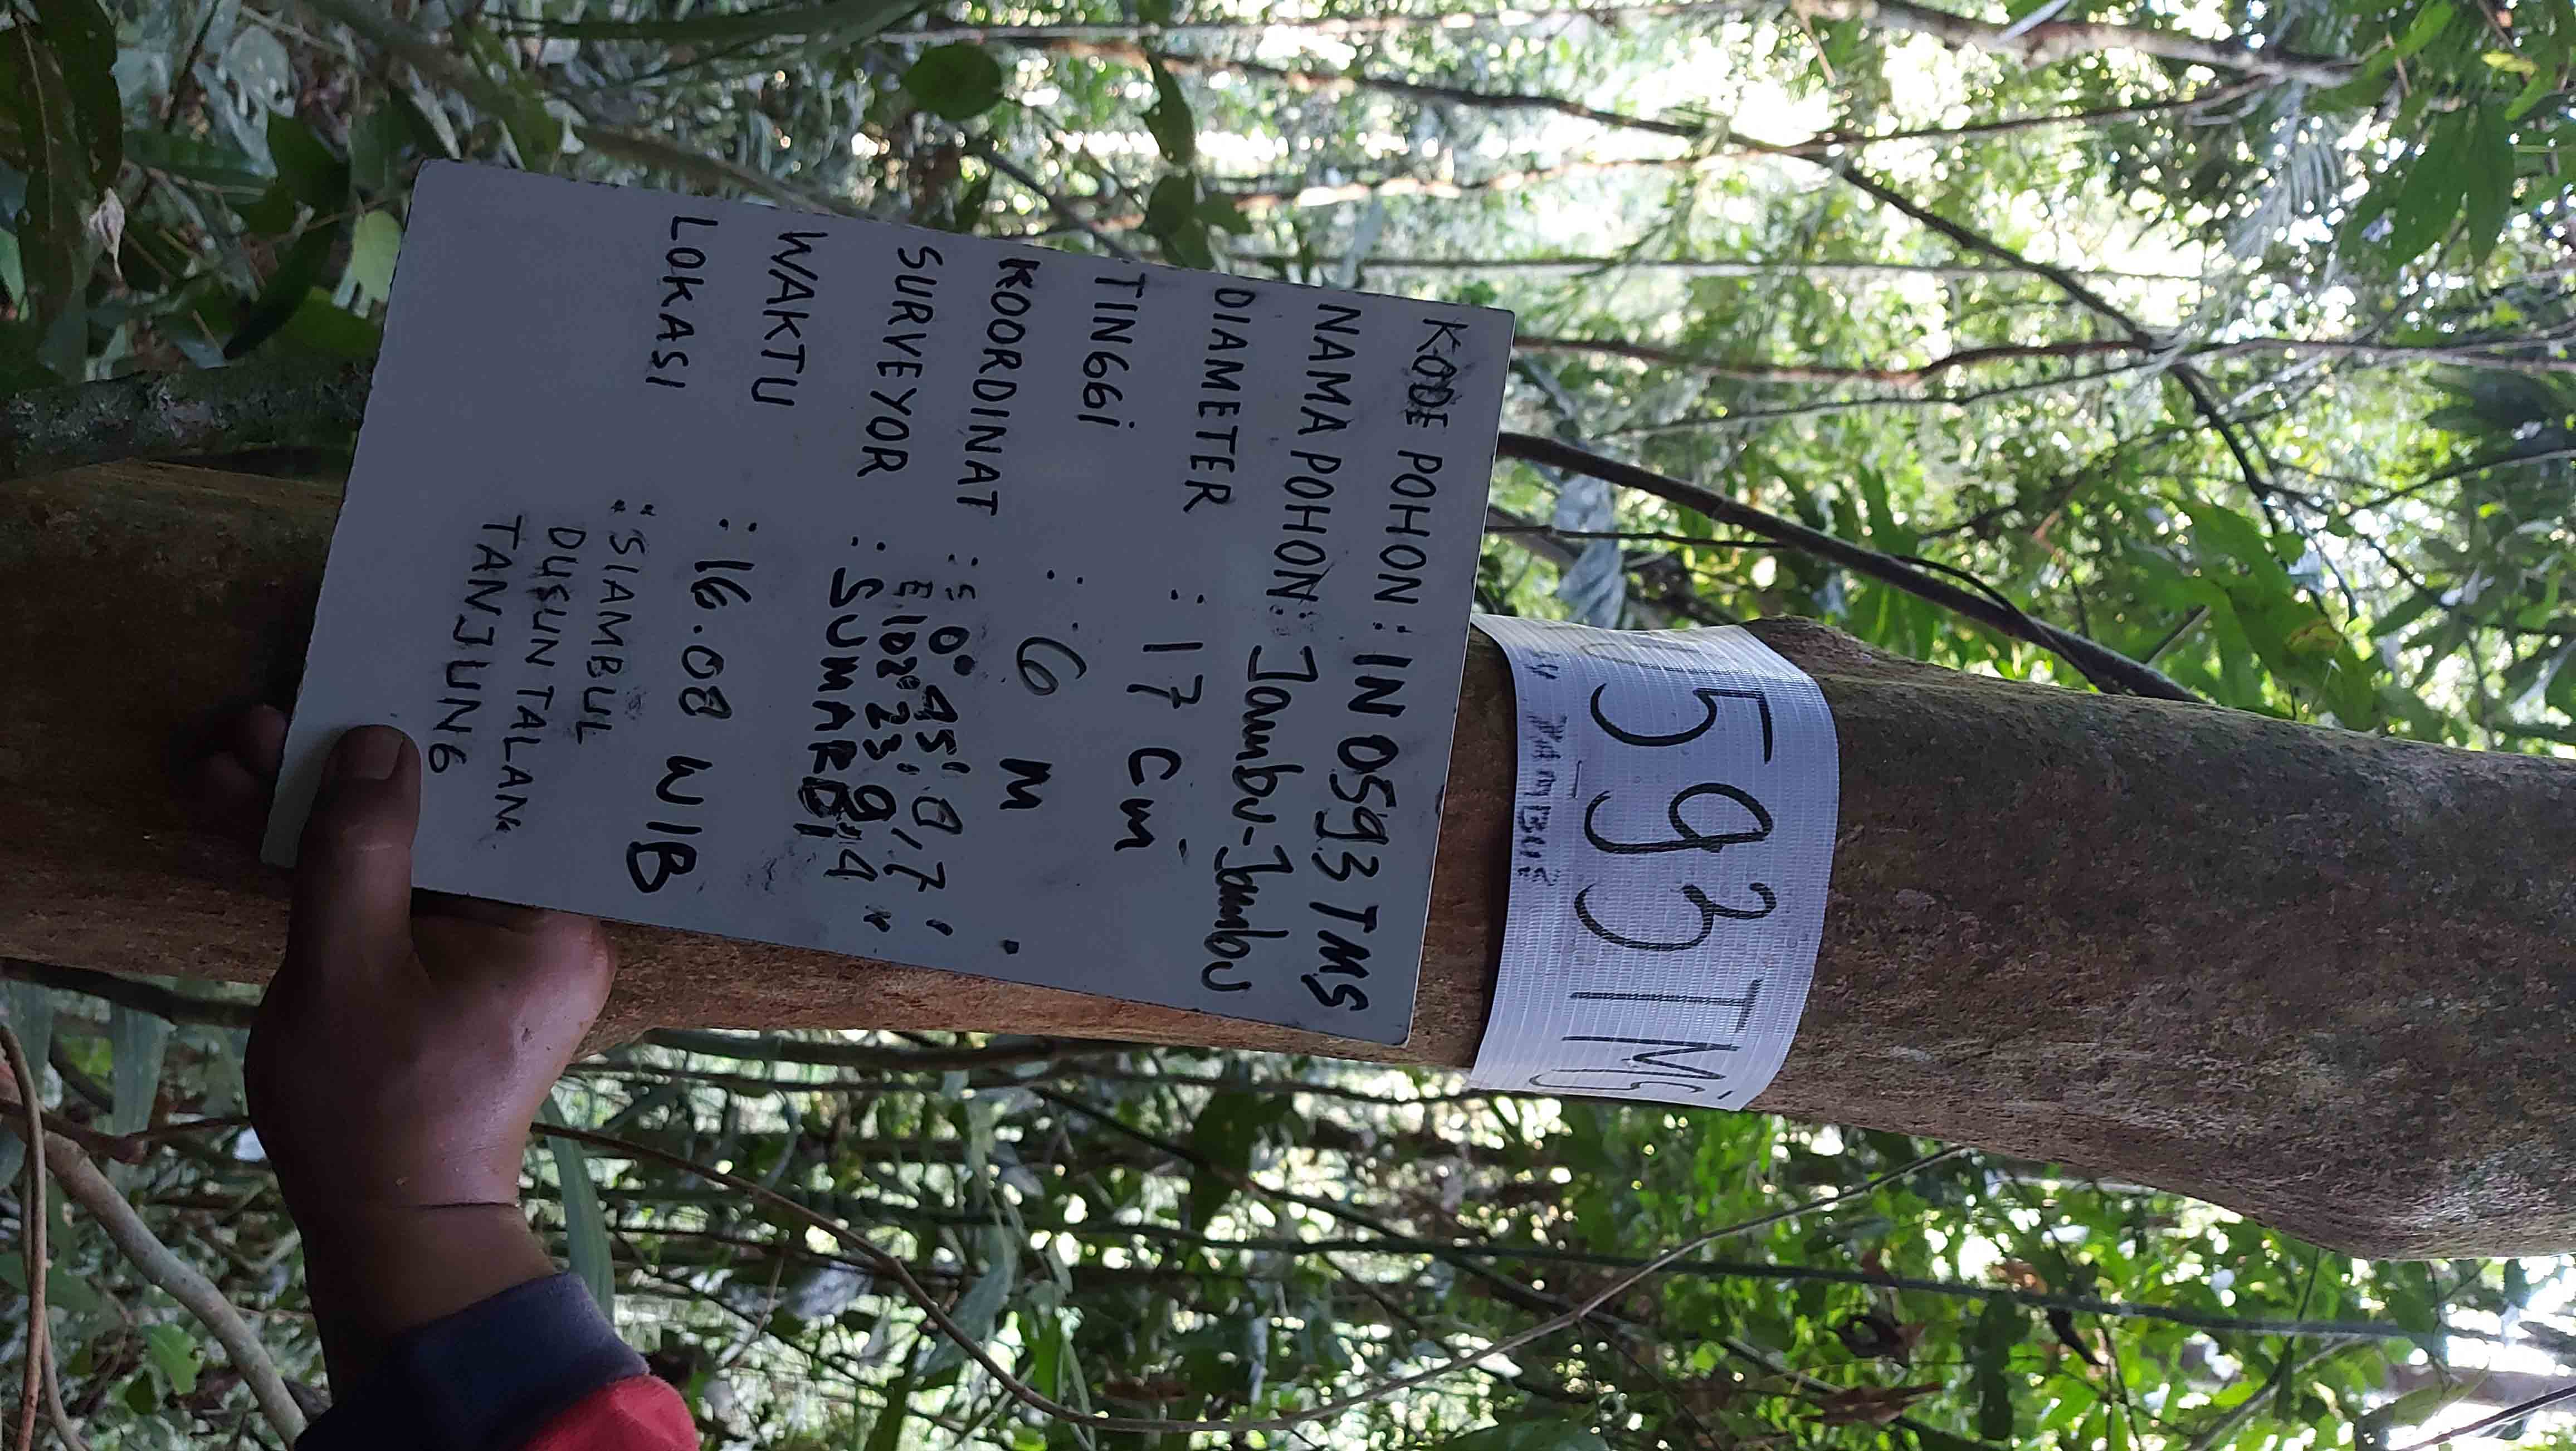 593TMS
JAMBU
KODE POHON : IN 0593 TMS
NAMA POHON : Jambu-Jambu
DIAMETER : 17 Cm
TINGGI : 6 M
KOORDINAT : S 0° 45' 8,7"
E 102° 23' 9,4"
SURVEYOR : SUMARDI
WAKTU : 16.08 WIB
LOKASI : SIAMBUL
DUSUN TALANG
TANJUNG